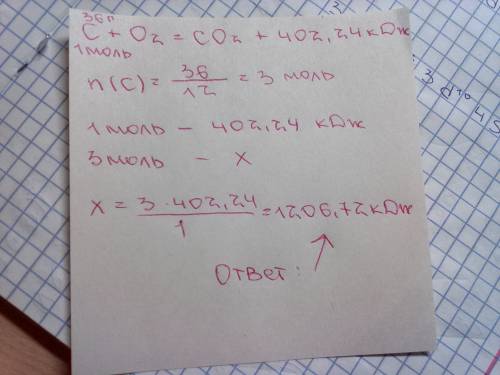 36г
C + O2 = CO2 + 402,24 кДж
1моль
n(C) = 36/12 = 3 моль
1моль – 402,24 кДж
3моль – x
x = 3·402,24/1 = 1206,72 кДж
Ответ: